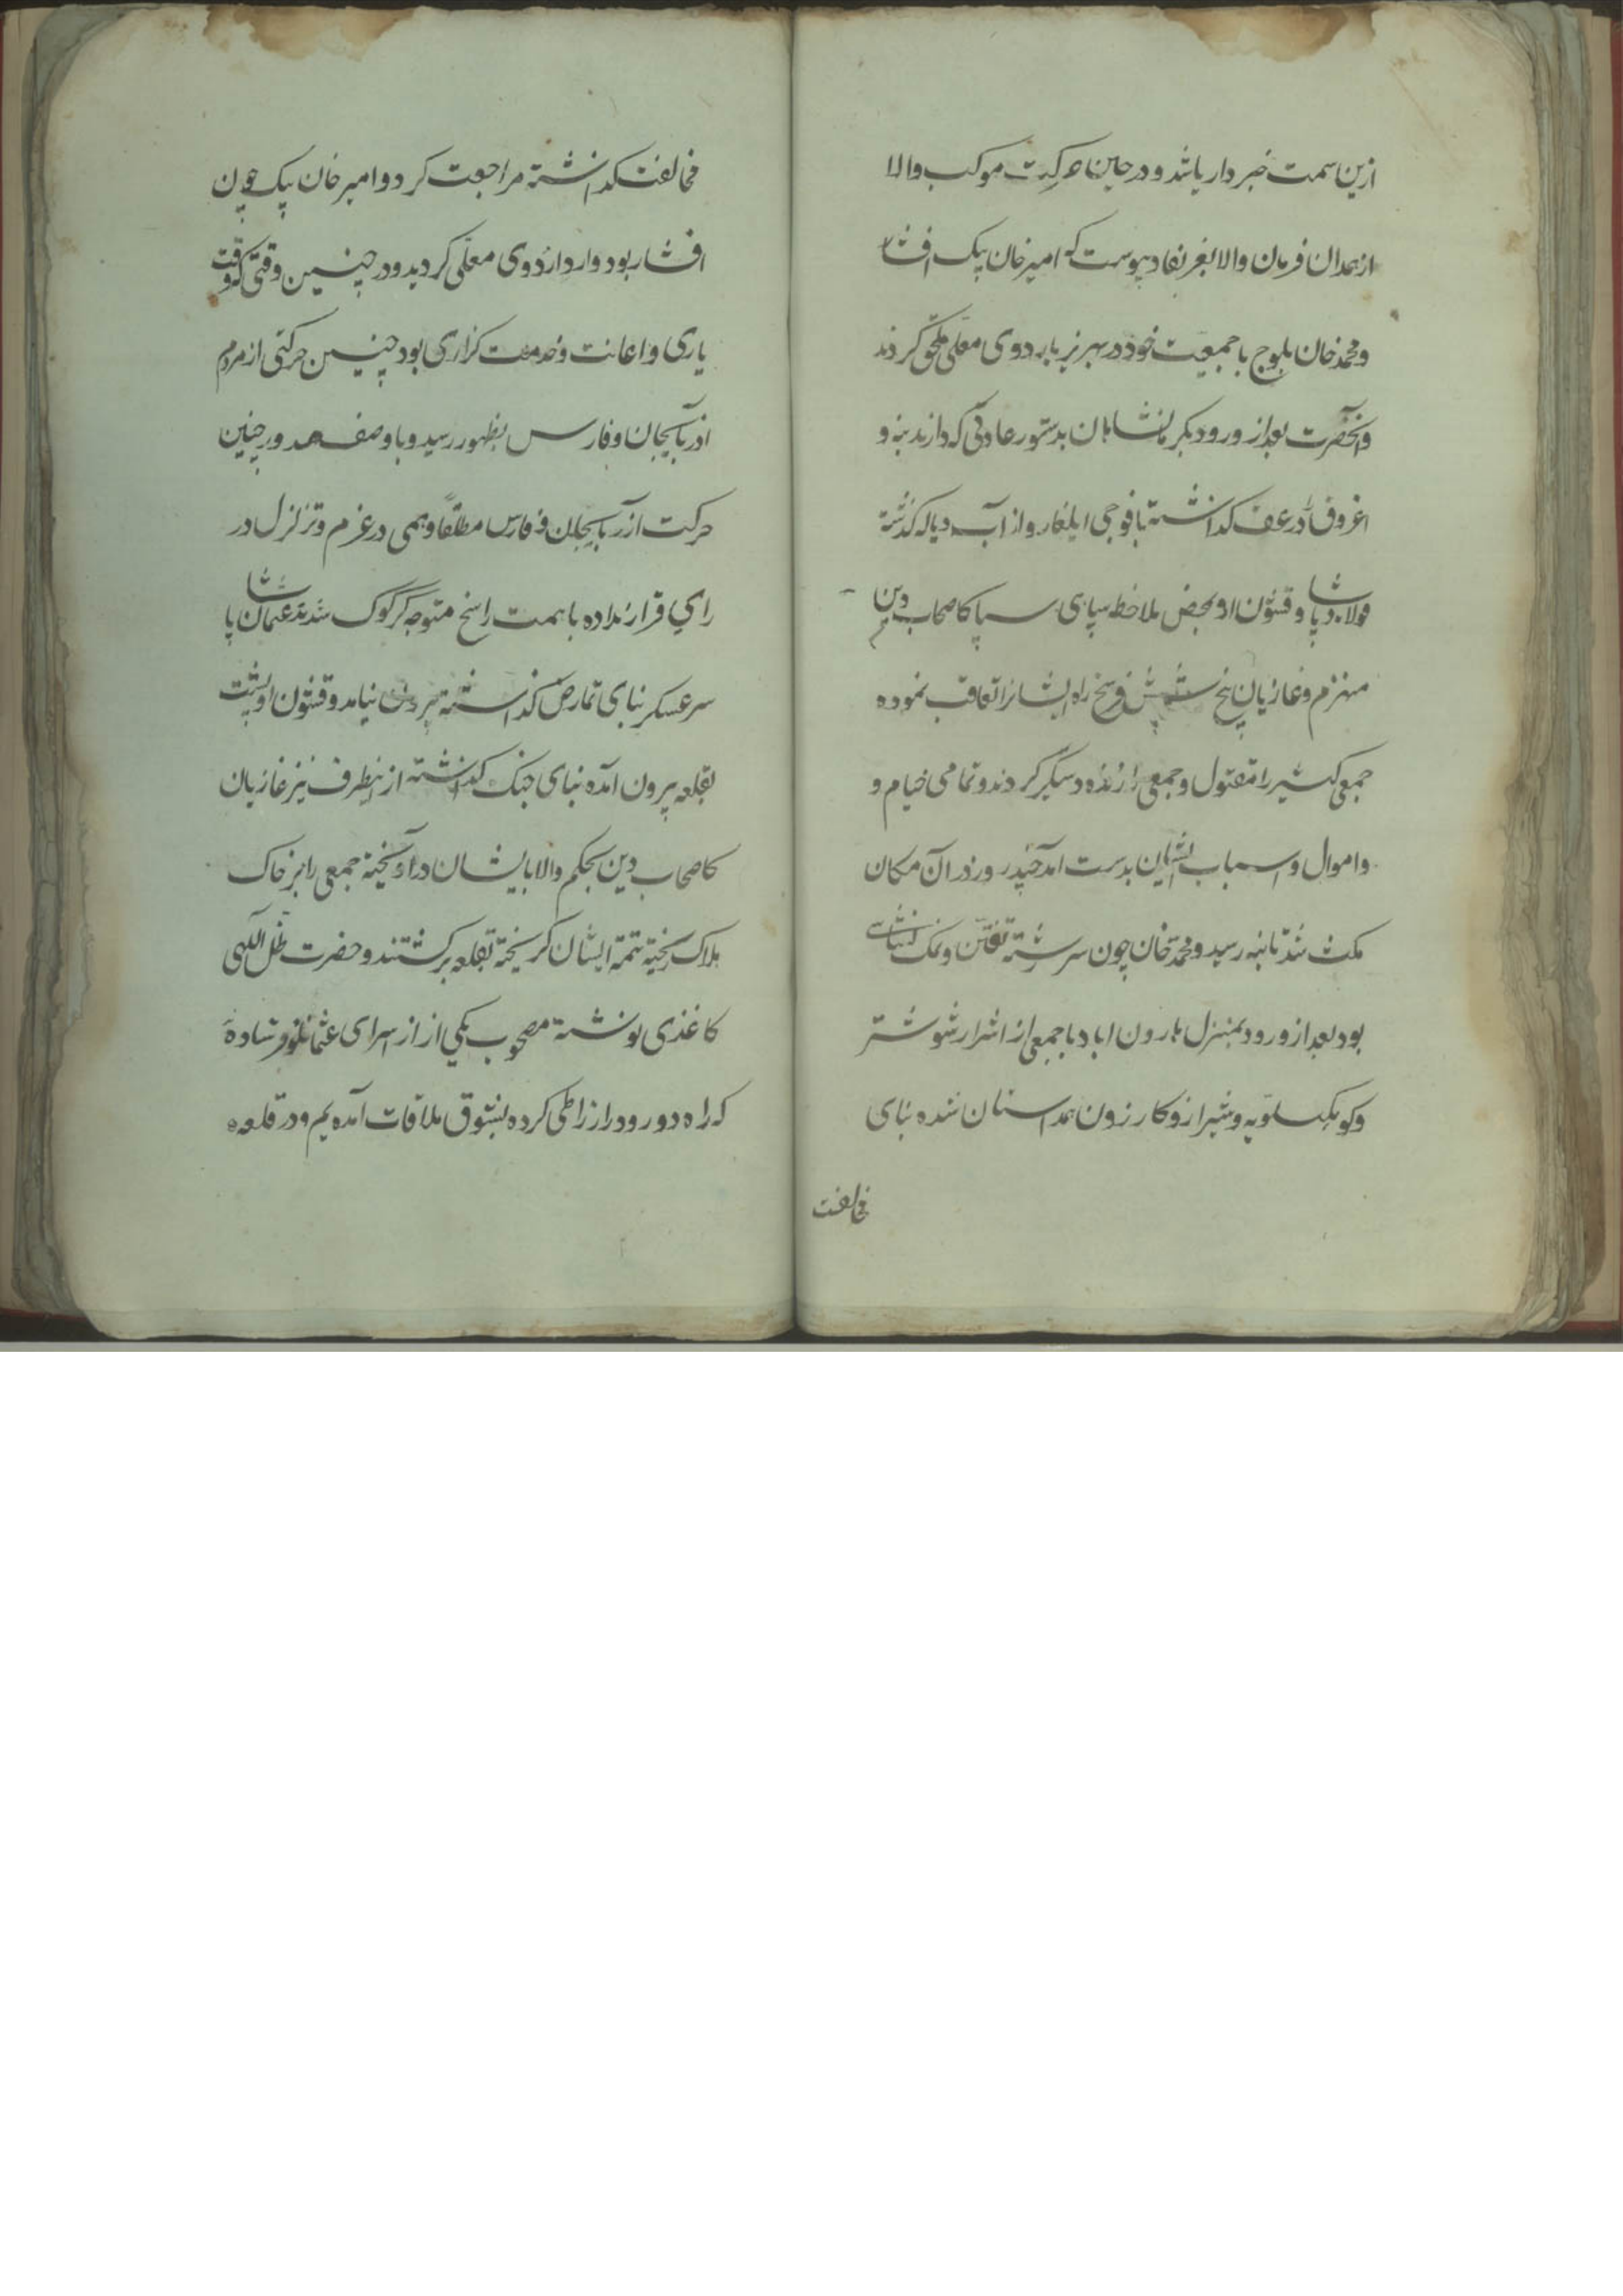 ازین سمت خبردار باشد و در حین حرکت موکب والا
از همدان فرمان والا بعز نفاد پیوست که امیرخان بیک افشار
و محمد خان بلوچ با جمعیت خود در بهریز باردوی معلی ملحق کردند
و آنحضرت بعد از ورود بکرمانشاهان بدستور عادتی که دارند بنه و
اغروق را در عقب کذاشته با فوجی ایلغار و از آب دیاله کذشته
فولاد پاشا و قشون او بمحض ملاحظه سیاهی سپاه کاصحاب دین
منهزم و غازیان پنج شش فرسخ راه ایشانرا تعاقب نموده
جمعی کثیر را مقتول و جمعی را زنده دستکیر کردند و تمامی خیام و
و اموال و اسباب ایشان بدست آمد چند روز در آن مکان
مکث شد تا بنه رسید و محمد خان چون سررشته تفتن و نمک نشناسی
بود بعد از ورود بمنزل هارون اباد با جمعی از اشرار شوشتر
و کوهکیلویه و شیراز و کازرون همداستان شده بنای
مخالفت
مخالفت کذاشته مراجعت کرد و امیرخان بیک چون
افشار بود وارد اردوی معلی کردید و در چنین وقتی که وقت
یاری و اعانت و خدمت کزاری بود چنین حرکتی از مردم
اذربایجان و فارس بظهور رسید و با وصف صدور چنین
حرکت از آذربایجان و فارس مطلقا وهمی در عزم و تزلزل در
رای قرار نداده با همت راسخ متوجه کرکوک شدند عثمان پاشا
سرعسکر بنای تمارض کذاشته بیرون نیامد و قشون او پشت
بقلعه بیرون آمده بنای جنک کذاشته از اینطرف نیز غازیان
کاصحاب دین بحکم والا بایشان در آویخته جمعی را بر خاک
هلاک ریخته تتمه ایشان کریخته بقلعه برکشتند و حضرت ظل اللهی
کاغذی نوشته مصحوب یکی از از اسرای عثمانلو فرستاده
که راه دور و دراز را طی کرده بشوق ملاقات آمده یم و در قلعه